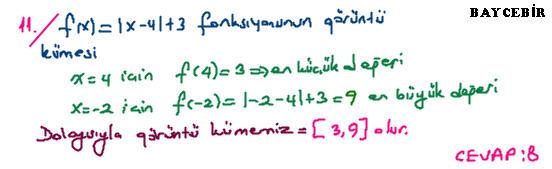 BAYCEBİR
11./ f(x)=|x-4|+3 fonksiyonunun görüntü
kümesi
x=4 için f(4)=3⇒en küçük değeri
x=-2 için f(-2)=|-2-4|+3=9 en büyük değeri
Dolayısıyla görüntü kümemiz=[3,9] olur.
CEVAP:B